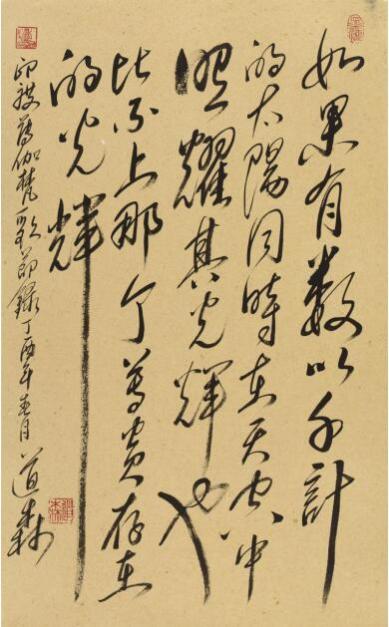 如果有数以千计
的太陽同時在天空中
照耀其光輝也
比不上那个尊贵存在
的光輝
印度薄伽梵歌節録丁酉年春月 道森